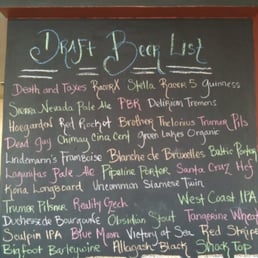 Draft Beer List
Death and Taxes Racer X Stella Racer 5 Guinness
Sierra Nevada Pale Ale PBR Delirium Tremens
Hoegarden Red Rocket Brother Thelonius Trumer Pils
Dead Guy Chimay Cinq Cent Green Lakes Organic
Lindemann's Framboise Blanche de Bruxelles Baltic Porter
Lagunitas Pale Ale Pipeline Porter Santa Cruz Hef
Kona Longboard Uncommon Siamese Twin
Trumer Pilsner Reality Czech West Coast IPA
Duchesse de Bourgogne Obsidian Stout Tangerine Wheat
Sculpin IPA Blue Moon Victory at Sea Red Stripe
Bigfoot Barleywine Allagash Black Shock Top